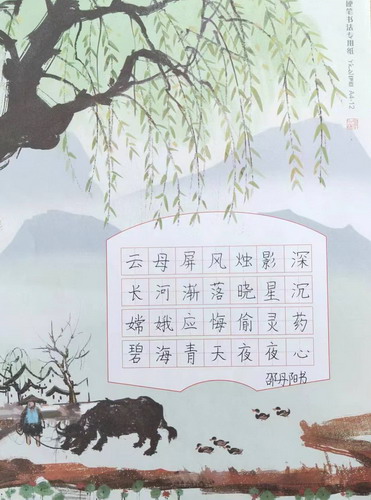 云母屏风烛影深
长河渐落晓星沉
嫦娥应悔偷灵药
碧海青天夜夜心
邵丹阳书
硬笔书法专用纸